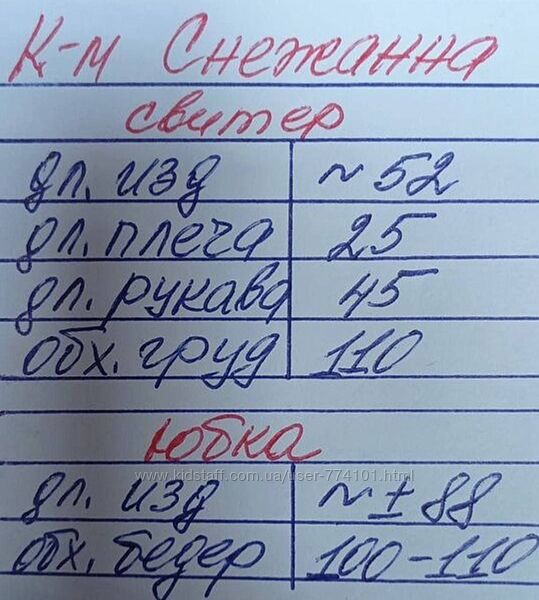 К-м Снежанна
свитер
дл. изд ~ 52
дл. плеча 25
дл. рукава 45
обх. груд 110
юбка
www.kidstaff.com.ua/user-774101.html
дл. изд ~ ± 88
обх. бедер 100-110